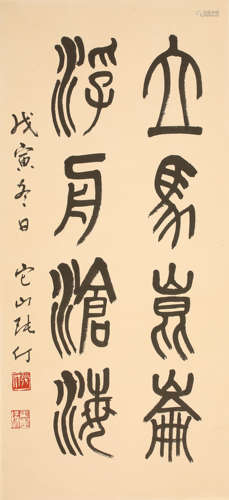 立馬崑崙
浮舟滄海
戊寅冬日 它山張仃